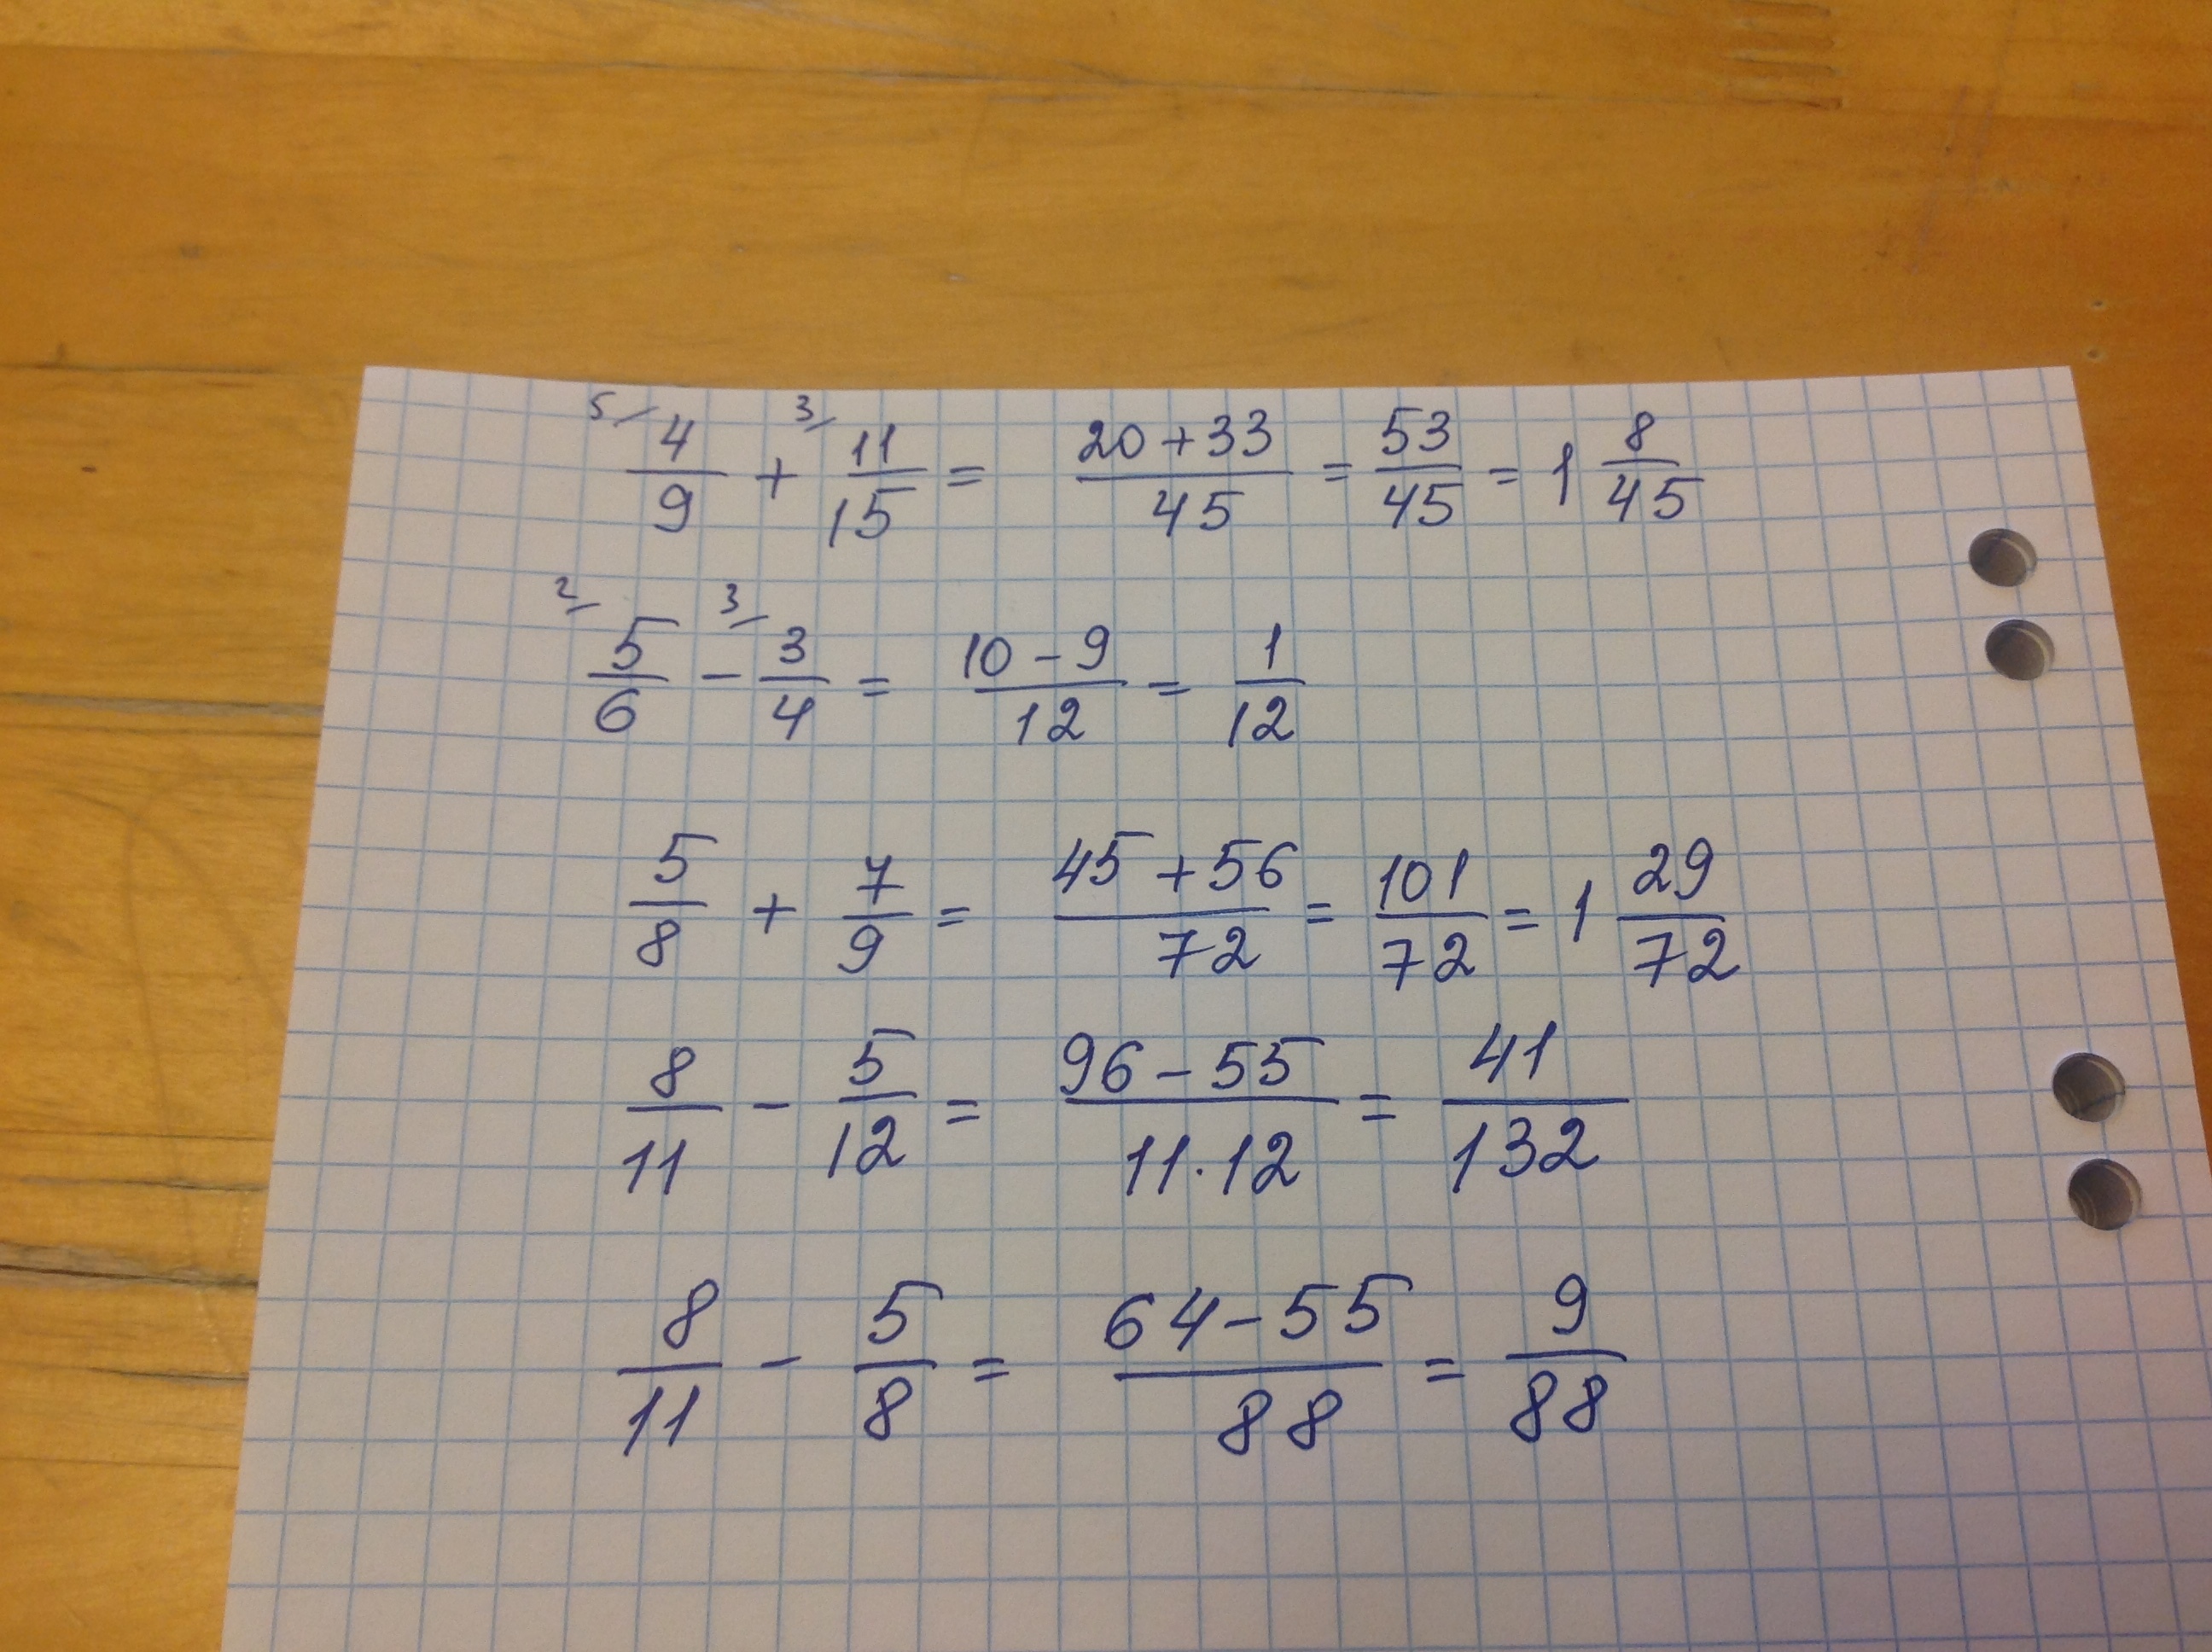 5/ 4/9 + 3/ 11/15 = (20+33)/45 = 53/45 = 1 8/45
2/ 5/6 - 3/ 3/4 = (10-9)/12 = 1/12
5/8 + 7/9 = (45+56)/72 = 101/72 = 1 29/72
8/11 - 5/12 = (96-55)/(11·12) = 41/132
8/11 - 5/8 = (64-55)/88 = 9/88